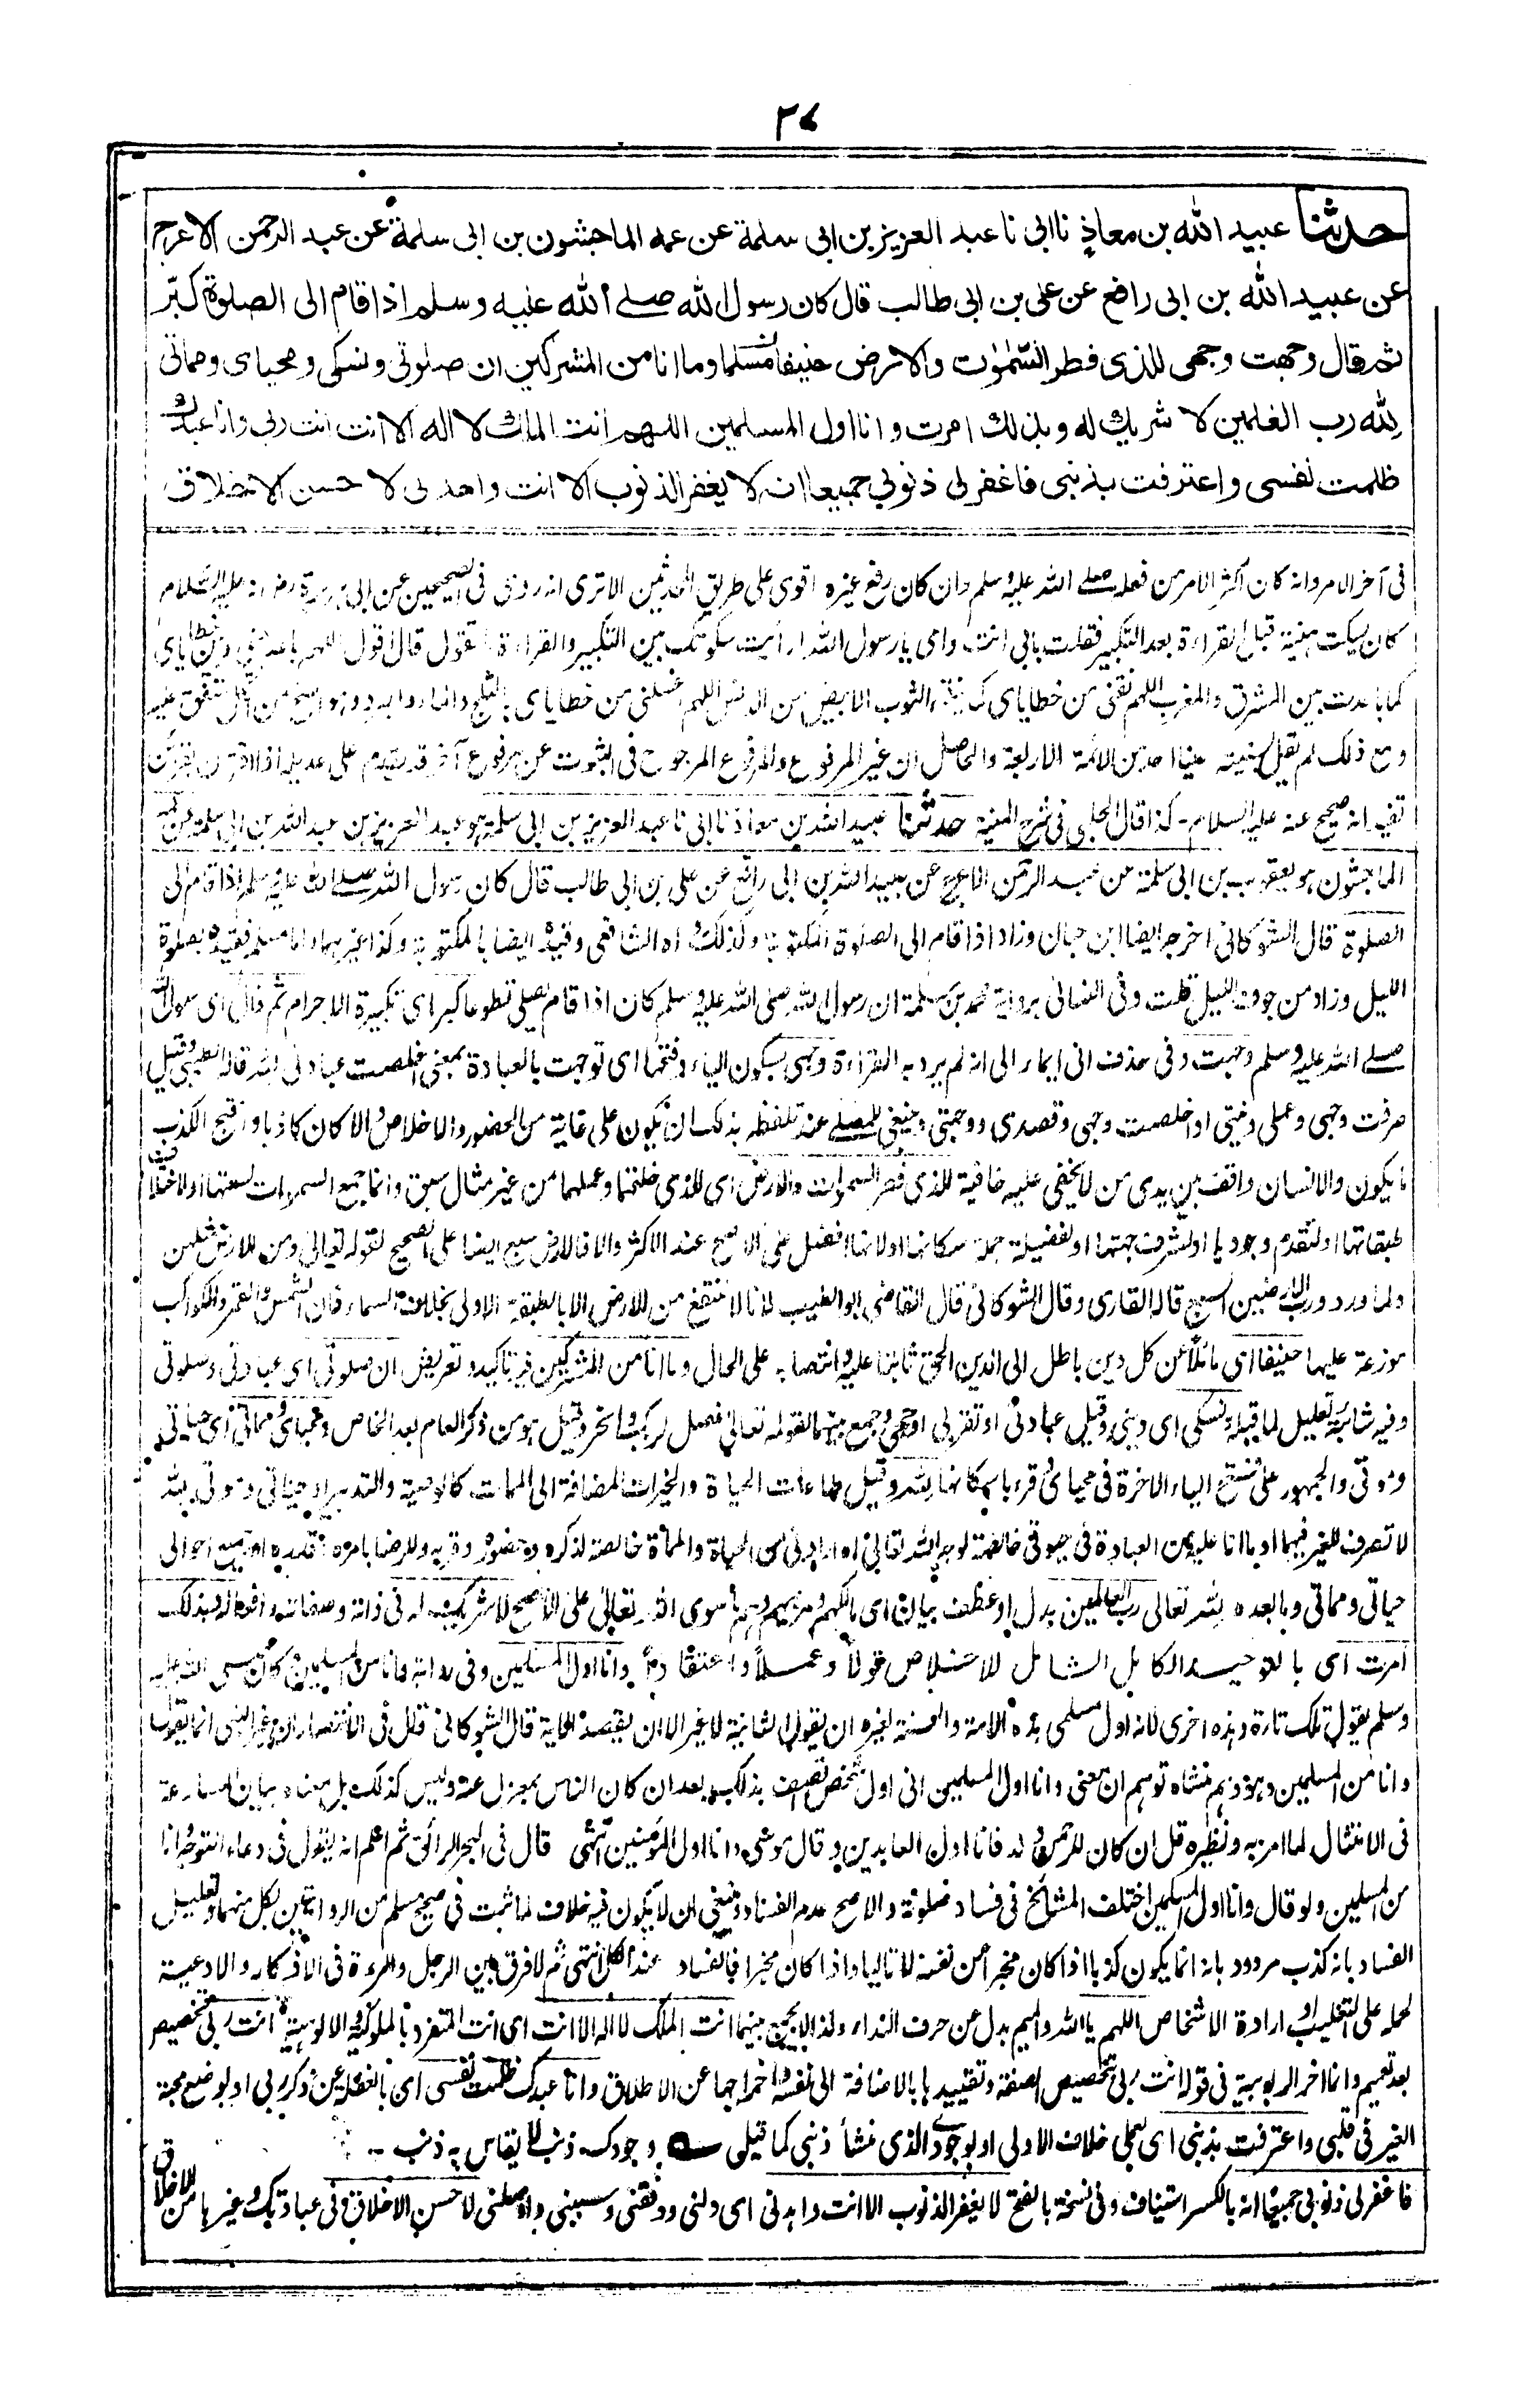 ٣٧
حدثنا عبيد الله بن معاذ نا ابي نا عبد العزيز بن ابى سلمة عن عمه الماجشون بن ابى سلمة عن عبد الرحمن الاعرج
عن عبيد الله بن ابى رافع عن على بن ابى طالب قال كان رسول الله صلے الله عليه وسلم اذا قام الى الصلوة كبّر
ثم قال وجهت وجهى للذى فطر السّمٰوٰت والارض حنيفا مسلما وما انا من المشركين ان صلوتى ونسكى ومحياى ومماتى
لله رب العلمين لا شريك له وبذلك امرت وانا اول المسلمين اللهم انت الملك لا اله الا انت انت ربى وانا عبدك
ظلمت نفسى واعترفت بذنبى فاغفر لى ذنوبي جميعا انه لا يغفر الذنوب الا انت واهدنى لا حسن الاخلاق
فى آخر الامر وانه كان اكثر الامر من فعله صلے الله عليه وسلم وان كان رفع غيره اقوى على طريق المحدثين الا ترى انه روى فى الصحيحين عن ابى هريرة انه عليه السلام
كان يسكت هنيئة قبل القراءة بعد التكبير فقلت بابى انت وامى يا رسول الله ارأيت سكوتك بين التكبير والقراءة ما تقول قال اقول اللهم باعد بيني وبين خطاياى
كما باعدت بين المشرق والمغرب اللهم نقنى من خطاياى كما ينقى الثوب الابيض من الدنس اللهم اغسلنى من خطاياى بالثلج والماء والبرد وهو اصح من الكل متفق عليه
ومع ذلك لم يقل بسنيته عينا احد من الائمة الاربعة والحاصل ان غير المرفوع والمرفوع المرجوح فى الثبوت عن مرفوع آخر قد يقدم على عديله اذا اقترن بقرائن
تفيد انه صحيح عنه عليه السلام - كذا قال الحلبى فى شرح المنية حدثنا عبيد الله بن معاذ نا ابى نا عبد العزيز بن ابى سلمة هو عبد العزيز بن عبد الله بن ابى سلمة عن عمه
الماجشون هو يعقوب بن ابى سلمة عن عبد الرحمن الاعرج عن عبيد الله بن ابى رافع عن على بن ابى طالب قال كان رسول الله صلے الله عليه وسلم اذا قام الى
الصلوة قال الشوكانى اخرجه ايضا ابن حبان وزاد اذا قام الى الصلوة المكتوبة وكذلك رواه الشافعى وقيده ايضا بالمكتوبة وكذا غيرهما واما مسلم فقيده بصلوة
الليل وزاد من جوف الليل قلت وفى النسائى برواية محمد بن مسلمة ان رسول الله صلى الله عليه وسلم كان اذا قام يصلى تطوعا كبر اى تكبيرة الاحرام ثم قال اى رسول الله
صلے الله عليه وسلم وجهت وفى حذف انى ايماء الى انه لم يرد به القراءة وجهى بسكون الياء وفتحها اى توجهت بالعبادة بمعنى اخلصت عبادتى لله قاله الطيبى وقيل
صرفت وجهى وعملى ونيتى او اخلصت وجهى وقصدى ووجهتى وينبغى للمصلے عند تلفظه بذلك ان يكون على غاية من الحضور والاخلاص والا كان كاذبا واقبح الكذب
ما يكون والانسان واقف بين يدى من لا يخفى عليه خافية للذى فطر السموات والارض اى للذى خلقهما وعملهما من غير مثال سبق وانما جمع السموات لسعتها او لاختلاف
طبقاتها او لتقدم وجودها او لشرف جهتها او لفضيلة جملة سكانها او لانها افضل على الاصح عند الاكثر والا فالارض سبع ايضا على الصحيح لقوله تعالى ومن الارض مثلهن
ولما ورد ورب الارضين السبع قاله القارى وقال الشوكانى قال القاضى ابو الطيب لانا لا ننتفع من الارض الا بالطبقة الاولى بخلاف السماء فان الشمس والقمر والكواكب
موزعة عليها حنيفا اى مائلا عن كل دين باطل الى الدين الحق ثابتا عليه وانتصابه على الحال وما انا من المشركين فيه تاكيد وتعريض ان صلوتى اى عبادتى وصلوتى
وفيه شائبة تعليل لما قبله ونسكى اى دينى وقيل عبادتى او تقربى او حجى وجمع بينهما لقوله تعالى فصل لربك وانحر وقيل هو من ذكر العام بعد الخاص ومحياى ومماتى اى حياتى
وموتى والجمهور على فتح الياء الاخرة فى محياى وقرء باسكانها لله وقيل طاعات الحياة والخيرات المضافة الى الممات كالوصية والتدبير او حياتى وموتى لله
لا تصرف للغير فيهما او ما انا عليه من العبادة فى حيوتى خالصة لوجه الله تعالى او ارادتى من الحياة والمماة خالصة لذكره وحضوره وقربه وللرضا بامره وقدره او جميع احوالى
حياتى ومماتى وما بعده لله تعالى رب العالمين بدل او عطف بيان اى مالكهم ومربيهم وهم ما سوى الله تعالى على الاصح لا شريك له فى ذاته وصفاته وافعاله وبذلك
امرت اى بالتوحيد الكامل الشامل للاخلاص قولا وعملاً واعتقاداً وانا اول المسلمين وفى رواية وانا من المسلمين كان صلى الله عليه
وسلم يقول تلك تارة وهذه اخرى لانه اول مسلمى هذه الامة والسنة لغيره ان يقول الثانية لا غير الا ان يقصد الحكاية قال الشوكانى قال فى الانتصار ان غير النبى انما يقول
وانا من المسلمين وهو وهم منشاه توهم ان معنى وانا اول المسلمين انى اول شخص اتصف بذلك بعد ان كان الناس بمعزل عنه وليس كذلك بل معناه بيان المسارعة
فى الامتثال لما امر به ونظيره قل ان كان للرحمن ولد فانا اول العابدين وقال موسى وانا اول المؤمنين انتهى قال فى البحر الرائق ثم اعلم انه يقول فى دعاء التوجه وانا
من المسلمين ولو قال وانا اول المسلمين اختلف المشائخ فى فساد صلوته والاصح عدم الفساد وينبغى ان لا يكون فيه خلاف لما ثبت فى صحيح مسلم من الروايتين بكل منهما وتعليل
الفساد بانه كذب مردود بانه انما يكون كذبا اذا كان مخبرا عن نفسه لا تاليا واذا كان مخبرا فالفساد عند الكل انتهى ثم لا فرق بين الرجل والمرءة فى الاذكار والادعية
لحمله على التغليب او ارادة الاشخاص اللهم يا الله والميم بدل عن حرف النداء ولذا لا يجمع بينهما انت الملك لا اله الا انت اى انت المتفرد بالملوكية والالوهية انت ربى تخصيص
بعد تعميم وانما اخر الربوبية فى قوله انت ربى لتخصيص الصفة وتقييدها بالاضافة الى نفسه واخراجها عن الاطلاق وانا عبدك ظلمت نفسى اى بالغفلة عن ذكر ربى او لوضع محبة
الغير فى قلبى واعترفت بذنبى اى بعملى خلاف الاولى او بوجودى الذى منشأ ذنبى كما قيل وجودك ذنب لا يقاس به ذنب
فاغفر لى ذنوبى جميعا انه بالكسر استيناف وفى نسخة بالفتح لا يغفر الذنوب الا انت واهدنى اى دلنى ووفقنى وسببنى واوصلنى لاحسن الاخلاق فى عبادتك وغيرها من الاخلاق